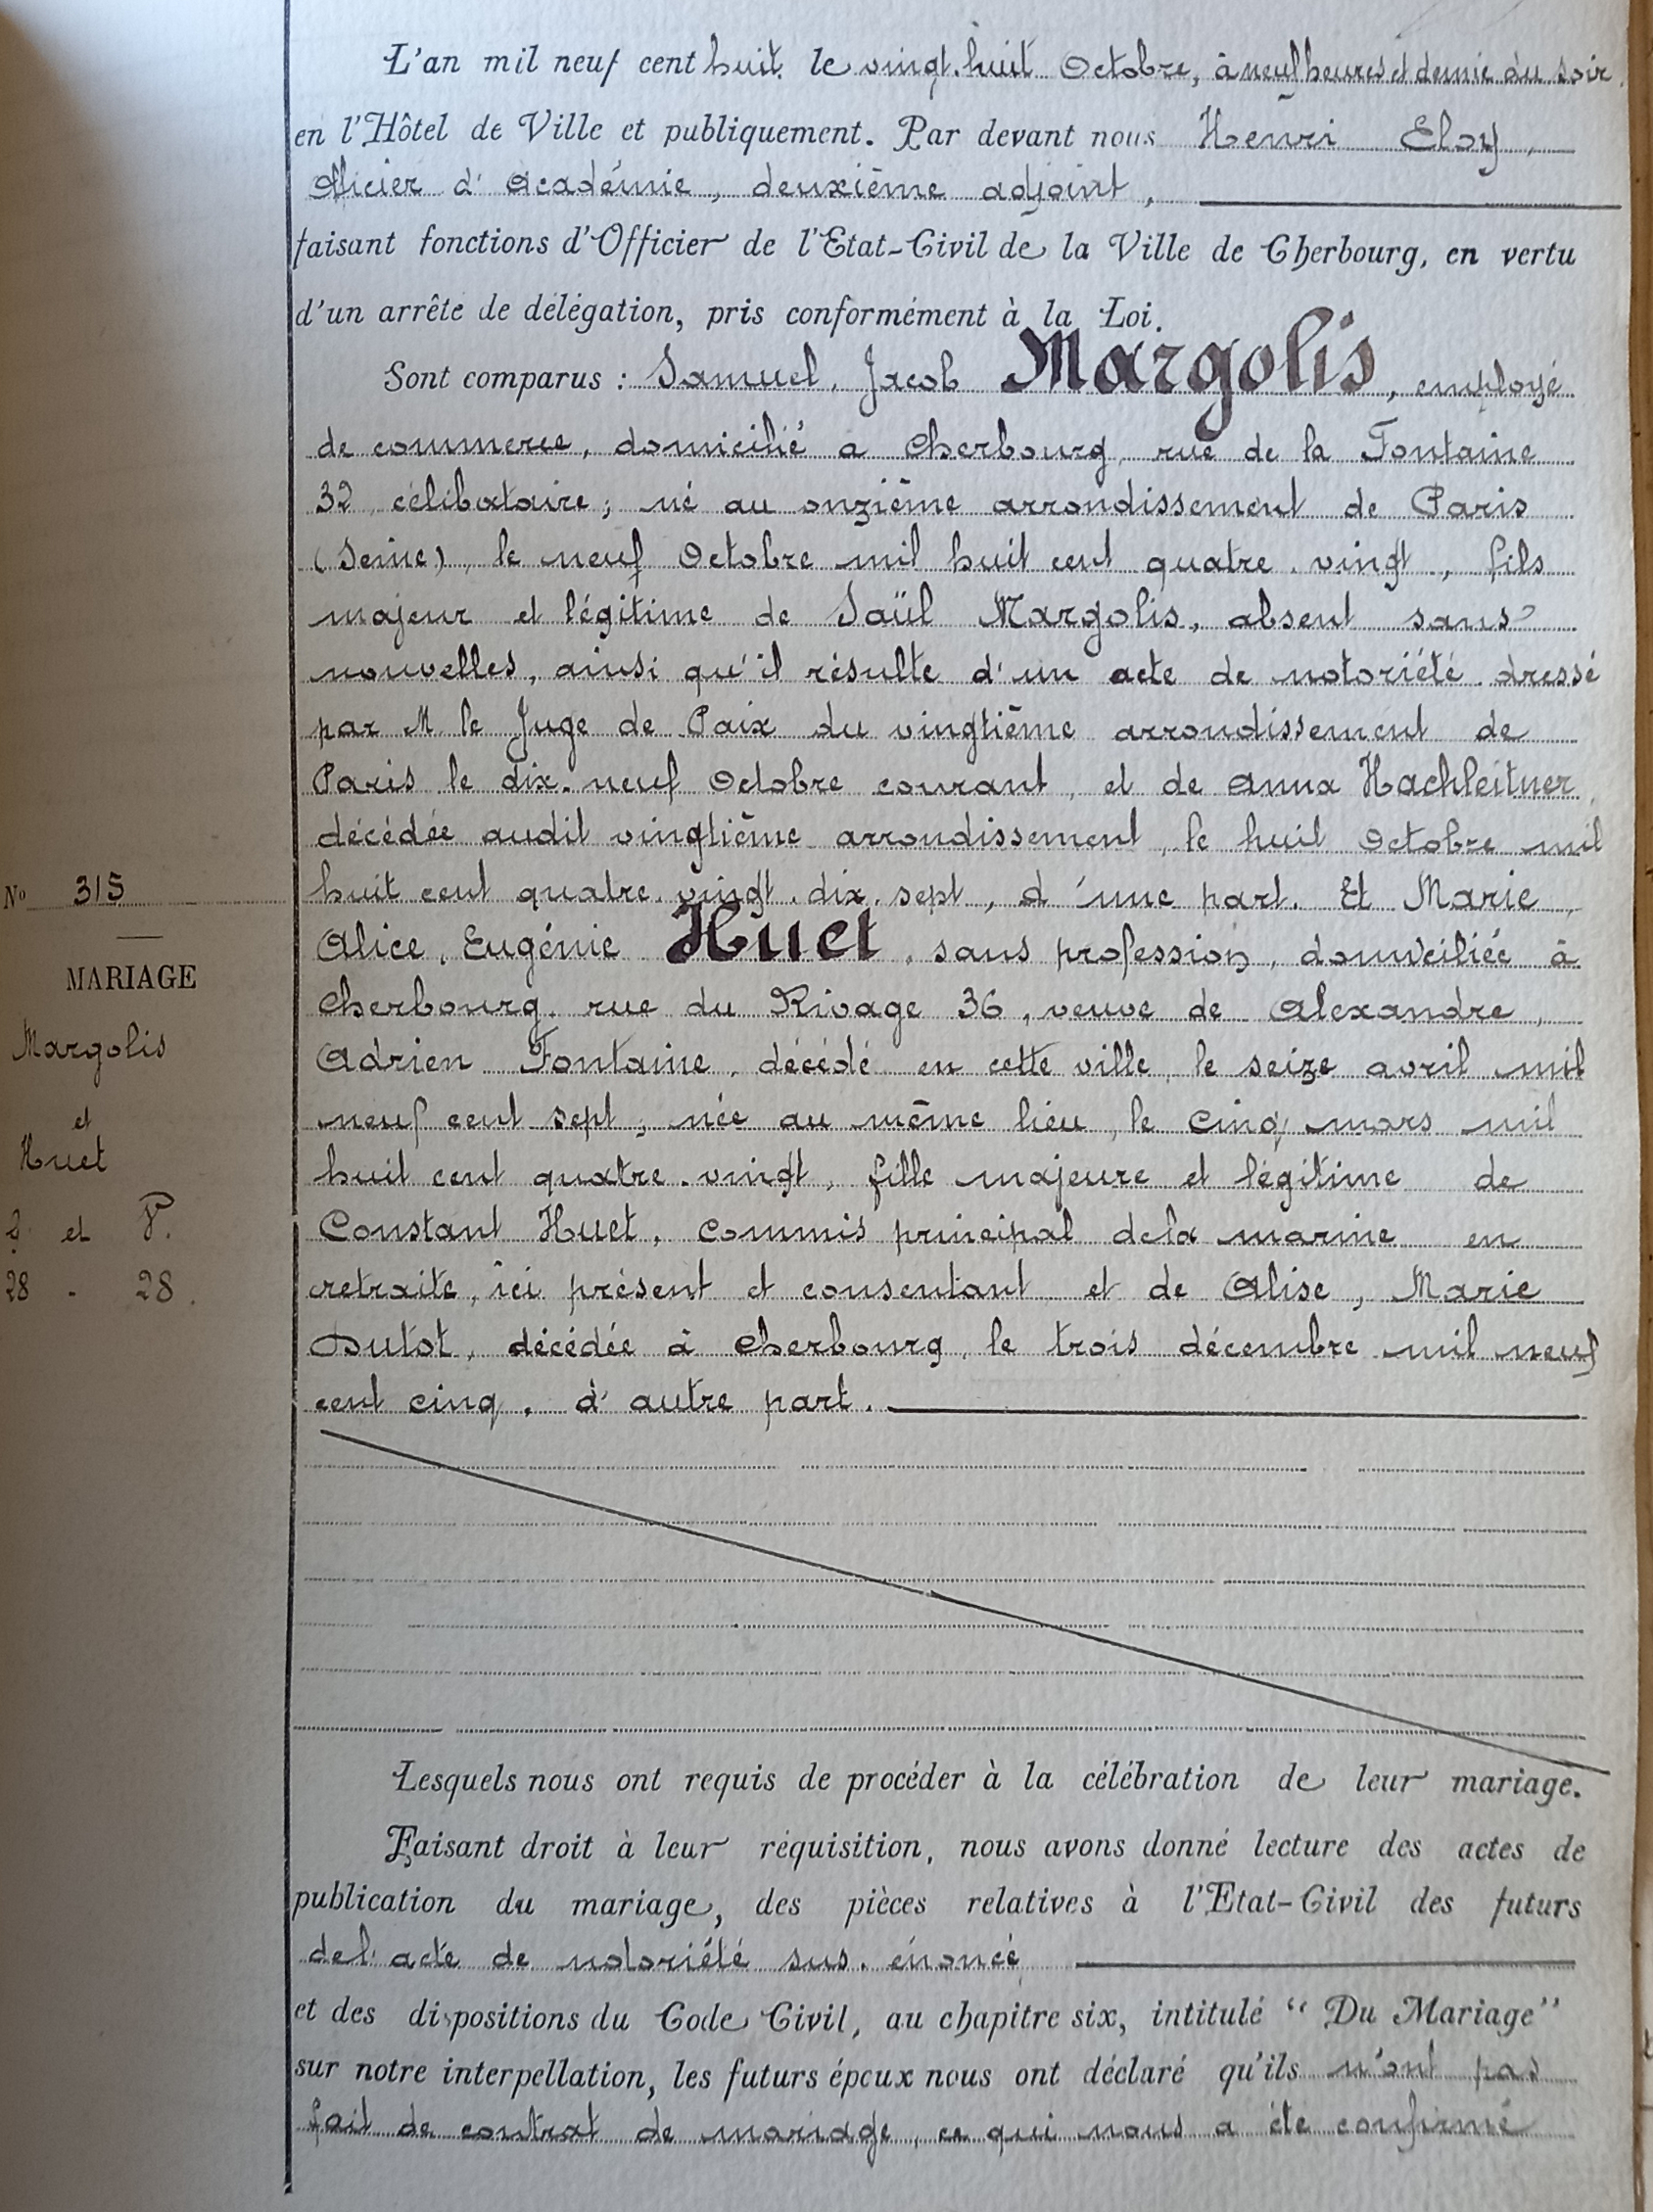 L'an mil neuf cent huit le vingt-huit Octobre, à neuf heures et demie du soir,
en l'Hôtel de Ville et publiquement. Par devant nous Henri Eloy,
Officier d'Académie, deuxième adjoint,
faisant fonctions d'Officier de l'Etat-Civil de la Ville de Cherbourg, en vertu
d'un arrêté de délégation, pris conformément à la Loi.
Sont comparus : Samuel, Jacob Margolis, employé
de commerce, domicilié a Cherbourg, rue de la Fontaine
32, célibataire ; né au onzième arrondissement de Paris
(Seine), le neuf Octobre mil huit cent quatre-vingt, fils
majeur et légitime de Saül Margolis, absent sans
nouvelles, ainsi qu'il résulte d'un acte de notoriété dressé
par M le Juge de Paix du vingtième arrondissement de
Paris le dix-neuf Octobre courant, et de Anna Hachleitner
décédée audit vingtième arrondissement, le huit Octobre mil
huit cent quatre-vingt-dix-sept, d'une part. Et Marie,
Alice, Eugénie Huet, sans profession, domiciliée à
Cherbourg, rue du Rivage 36, veuve de Alexandre,
Adrien Fontaine, décédé en cette ville, le seize avril mil
neuf cent sept ; née au même lieu, le cinq mars mil
huit cent quatre-vingt, fille majeure et légitime de
Constant Huet, commis principal de la marine en
retraite, ici présent et consentant et de Alise, Marie
Dutot, décédée à Cherbourg, le trois décembre mil neuf
cent cinq, d'autre part.
No 315
MARIAGE
Margolis
et
Huet
et P.
28 - 28.
Lesquels nous ont requis de procéder à la célébration de leur mariage.
Faisant droit à leur réquisition, nous avons donné lecture des actes de
publication du mariage, des pièces relatives à l'Etat-Civil des futurs
de l'acte de notoriété sus-énoncé
et des dispositions du Code Civil, au chapitre six, intitulé "Du Mariage"
sur notre interpellation, les futurs époux nous ont déclaré qu'ils n'ont pas
fait de contrat de mariage, ce qui nous a été confirmé